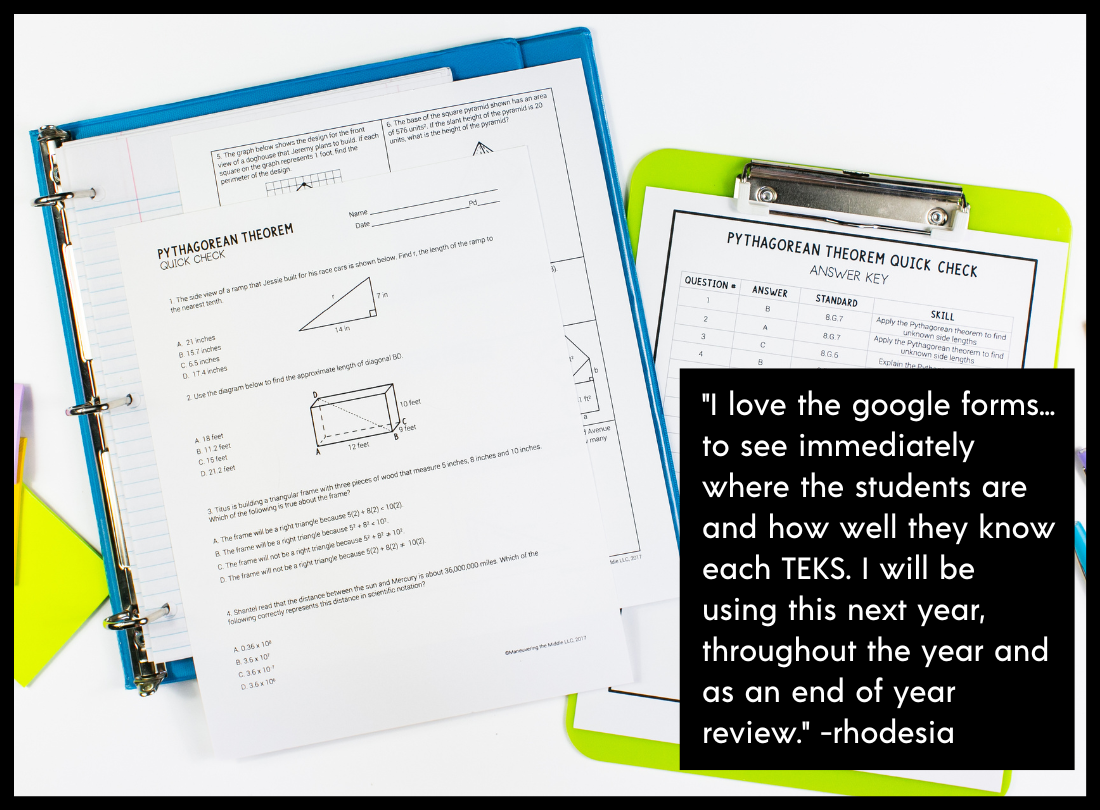 5. The graph below shows the design for the front
view of a doghouse that Jeremy plans to build. If each
square on the graph represents 1 foot, find the
perimeter of the design.
6. The base of the square pyramid shown has an area
of 576 units². If the slant height of the pyramid is 20
units, what is the height of the pyramid?
Name
Pd
Date
PYTHAGOREAN THEOREM
QUICK CHECK
1. The side view of a ramp that Jessie built for his race cars is shown below. Find r, the length of the ramp to
the nearest tenth.
r
7 in
14 in
A. 21 inches
B. 15.7 inches
C. 6.5 inches
D. 17.4 inches
2. Use the diagram below to find the approximate length of diagonal BD.
D
10 feet
C
9 feet
B
12 feet
A
A. 18 feet
B. 11.2 feet
C. 15 feet
D. 21.2 feet
3. Titus is building a triangular frame with three pieces of wood that measure 5 inches, 8 inches and 10 inches.
Which of the following is true about the frame?
A. The frame will be a right triangle because 5(2) + 8(2) < 10(2).
B. The frame will be a right triangle because 5² + 8² < 10².
C. The frame will not be a right triangle because 5² + 8² ≠ 10².
D. The frame will not be a right triangle because 5(2) + 8(2) ≠ 10(2).
4. Shantel read that the distance between the sun and Mercury is about 36,000,000 miles. Which of the
following correctly represents this distance in scientific notation?
A. 0.36 x 10⁸
B. 3.6 x 10⁷
C. 3.6 x 10⁻⁷
D. 3.6 x 10⁶
©Maneuvering the Middle LLC, 2017
b
ft²
a
Avenue
many
LLC, 2017
PYTHAGOREAN THEOREM QUICK CHECK
ANSWER KEY
QUESTION # ANSWER STANDARD SKILL
1 B 8.G.7 Apply the Pythagorean theorem to find
unknown side lengths
2 A 8.G.7 Apply the Pythagorean theorem to find
unknown side lengths
3 C 8.G.6 Explain the
4 B
"I love the google forms...
to see immediately
where the students are
and how well they know
each TEKS. I will be
using this next year,
throughout the year and
as an end of year
review." -rhodesia